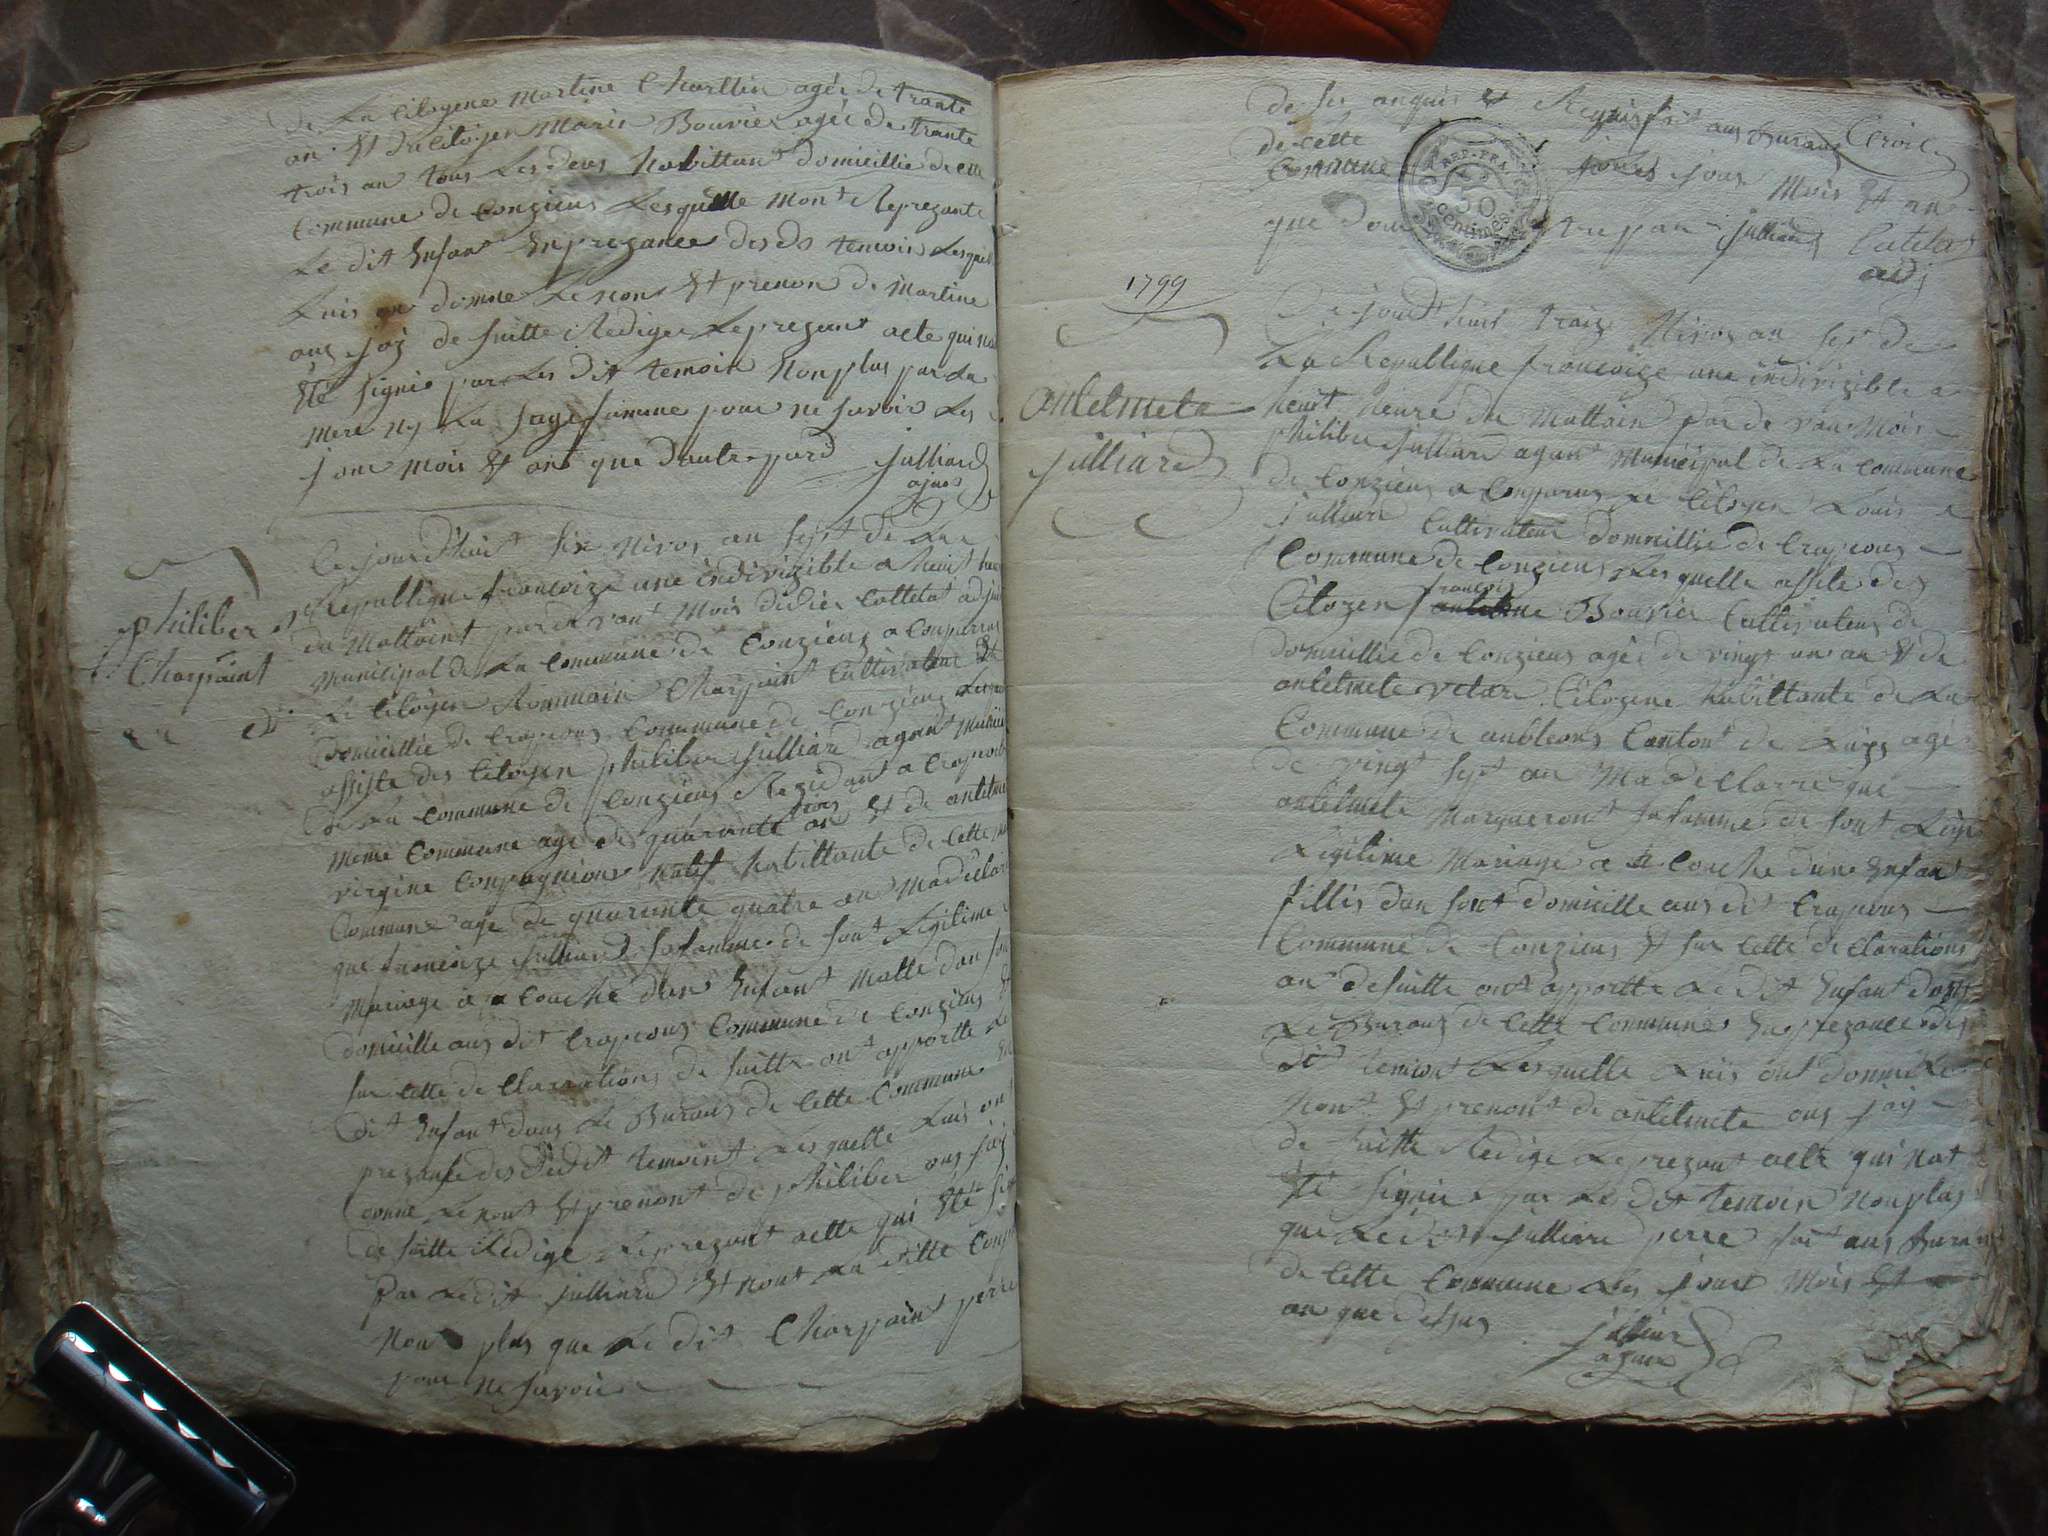 De La Citoyene Martine Charllin agée de trante
an Et du Citoyen Marin Bouvier agée de trante
trois an tous Les deux habittant domicillie de cette
Commune de Conzieux Lesquelle Mont Reprezante
Le dit Enfant En prezance des ds temoin Lesquel
Luis on donne Le Nom Et prenon de Martine
ous jaÿ de suitte Rediger Le prezant acte qui na
Eté signié par Les dit temoin Non plus par La
Mere Nÿ La sage famme pour ne savoir Les
jour Mois Et ans que d'autre pard julliard
philiber
Charpaint
Ce jourd'huit six Nivos an sept de La
Republique francoize une indivizible a huit heure
du Mattaint par de vant Mois didier Cattelat adjoint
Municipal de La Commune de Conzieux a Comparus
Le Citoyen Rommain Charpaint Cultivateur
Domicillie de Crapeous Commune de Conzieux
assiste des Citoyen philiber julliard agant Municipal
de La Commune de Conzieux Rezidant a Crapeous
Meme Commune age de quarante trois an Et de antelme
virgine Conpagnions Natif habittante de Cette
Commune age de quarante quatre an Ma declare
que francoize julliard sa famme de sont Legitime
Mariage a a Couche dun Enfant Malle dan son
domicille aus dit Crapeous Commune de Conzieux Et
sur Cette de Clarrations de suitte ont apportte Le
dit Enfant dans Le Buraus de Cette Commune En
prezanse des dedit temoint Lesquelle Luis on
donne Le nont Et prenont de philiber ous jaÿ
de suitte Redige Le prezant actte qui Eté signie
par Ledit julliard Et nont La ditte Conpagnion
Non plus que Le dit Charpaint perre
pour ne savoir
de ses anquis Et Requis fait aus Buraus
de cette
Commune
jour Mois Et an
que dautre part julliard Catelat
adj
1799
antelmete
julliard
Ce jourd'huit traize Nivos an set de
La Republique francoize une indivizible a
heuit heure du Mattain par de van Mois
philiber julliard agant Municipal de La Commune
de Conzieux a Conparus Le Citoyen Louis
julliard Cultivateur domicillie de Crapeous
Commune de Conzieux Les quelle assite des
francois
Citoyen antelme Bouvier Cultivateur de
domicillie de Conzieux agée de vingt un an Et de
antelmete velar Citoyene habittante de La
Commune de anbleons Cantont de Luÿs agé
de vingt sept an Ma de Clarre que
antelmete Marqueront sa famme de sont
Legitime Mariage a a Couche dune Enfant
filles dan sont domicille aus dit Crapeous
Commune de Conzieux Et sur Cette de Clarations
an desuitte ont apportte Le dit Enfant dans
Le Buraus de Cette Commune En prezance des
dit temoint Lesquelle Luis ont donné Le
Nont Et prenont de antelmete ous jaÿ
de suitte Redige Le prezant acte qui Nat
Eté signié par Le dit temoin Non plus
que Le dit julliard perre fait aus Buraus
de Cette Commune Les jour Mois Et
an que desus julliar
agant